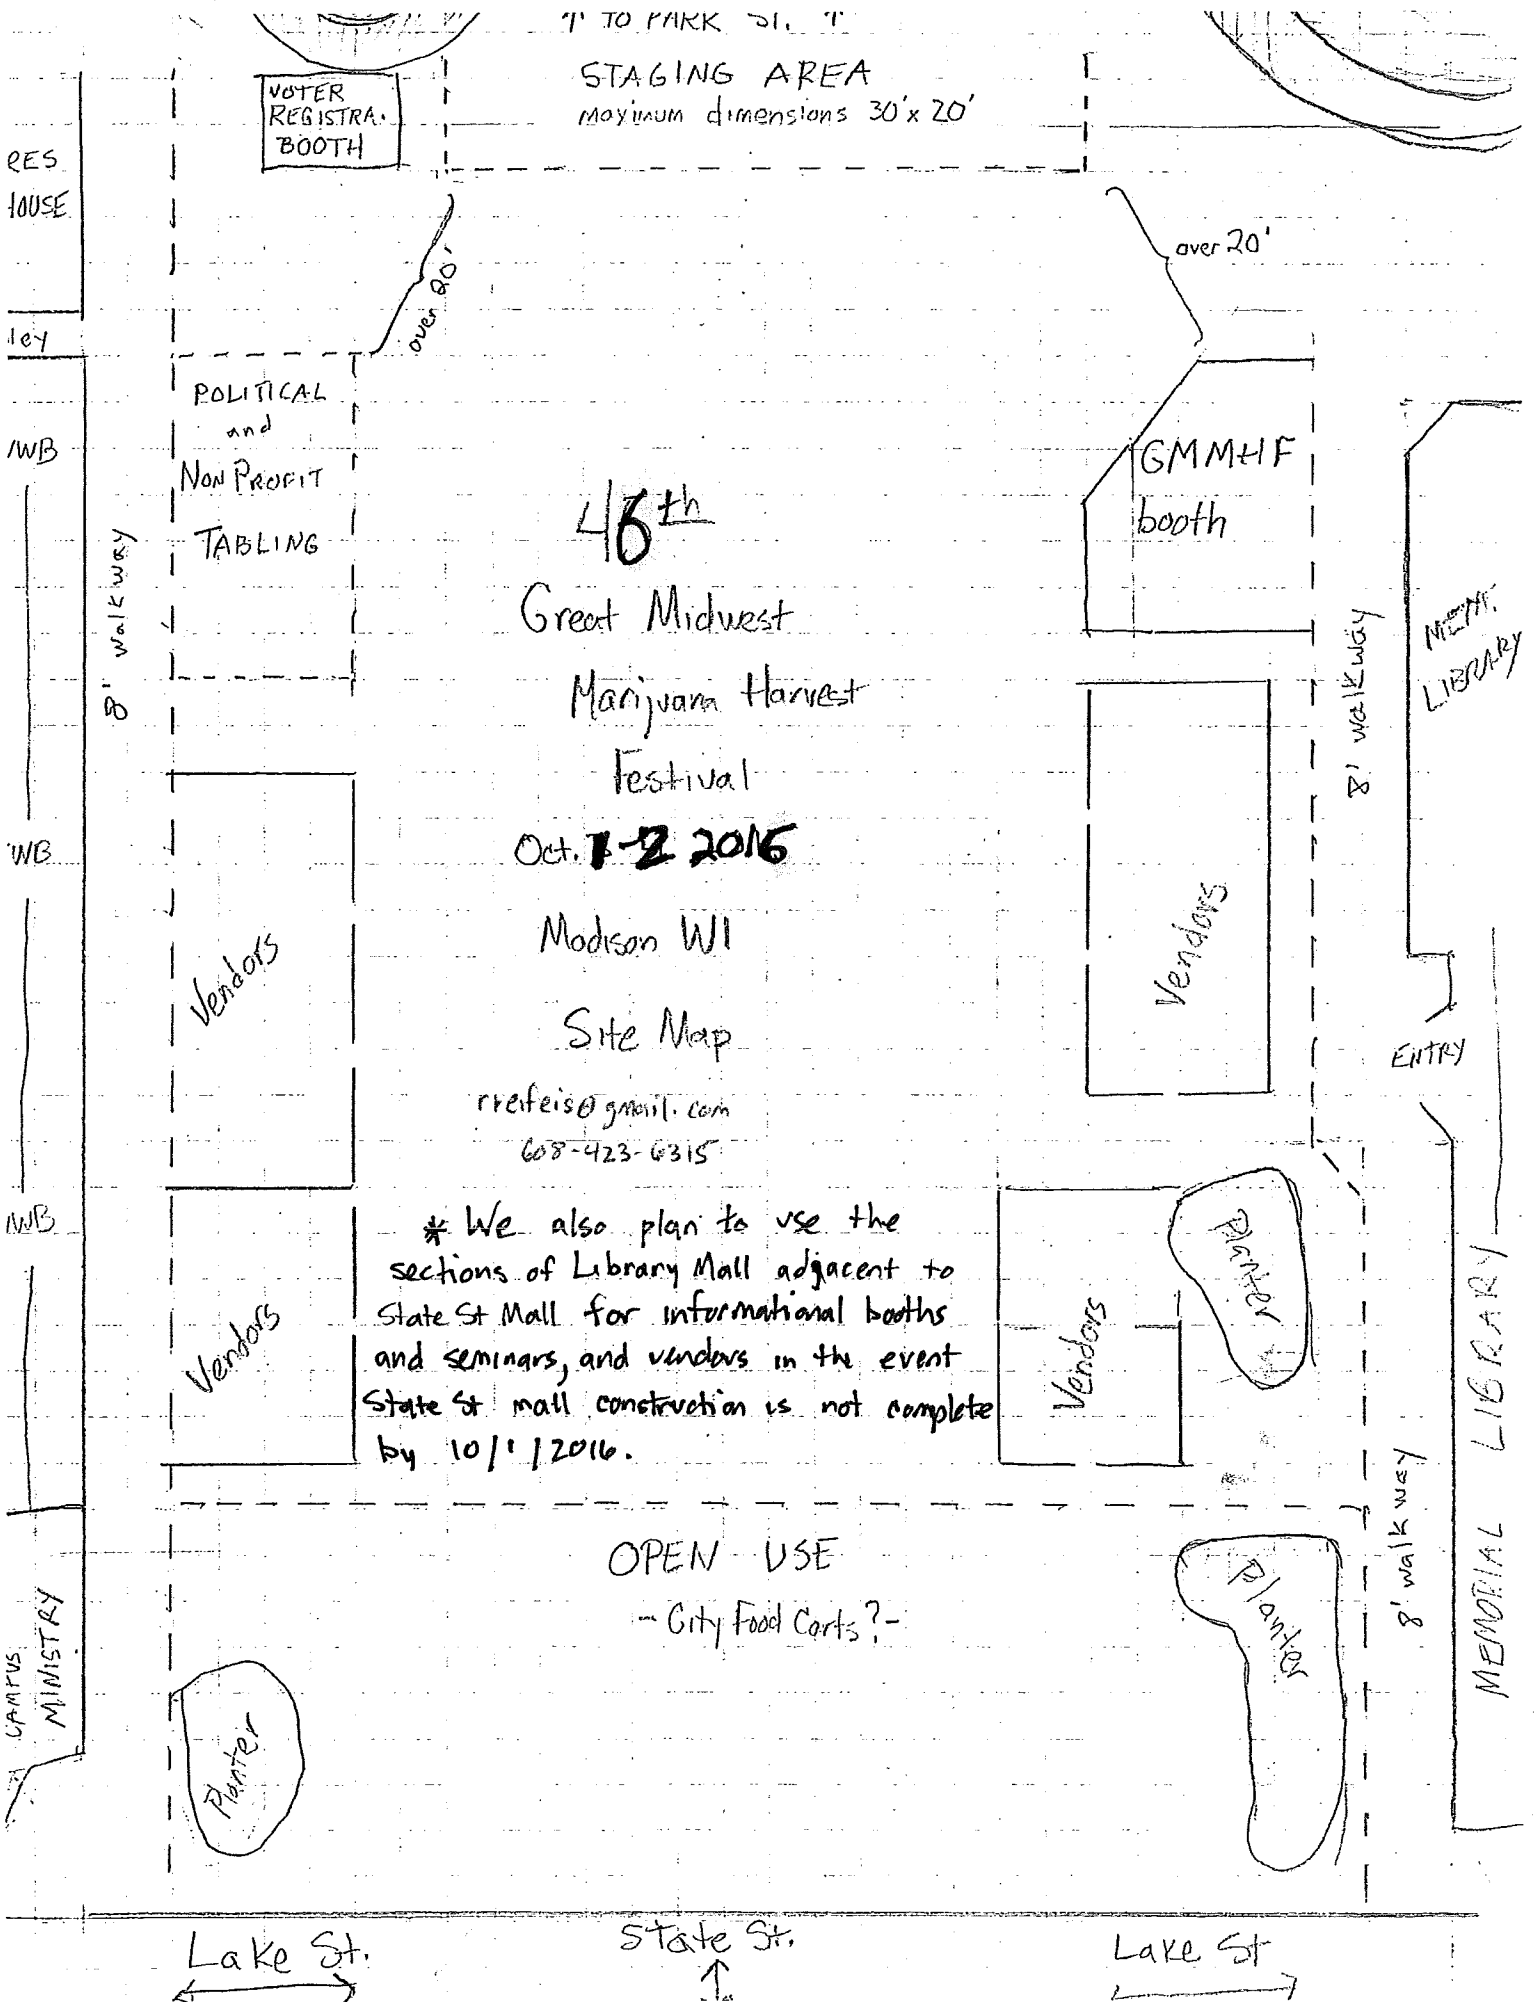 ↑ TO PARK ST. ↑
STAGING AREA
maximum dimensions 30' x 20'
VOTER
REGISTRA.
BOOTH
RES
HOUSE
ley
over 20'
over 20'
POLITICAL
and
NON PROFIT
TABLING
GMMHF
booth
WB
8' walkway
46th
Great Midwest
Marijuana Harvest
Festival
Oct. 1-2 2016
Madison WI
Site Map
rreifeis@gmail.com
608-423-6315
8' walkway
MEM.
LIBRARY
WB
Vendors
Vendors
ENTRY
WB
Vendors
* We also plan to use the
sections of Library Mall adjacent to
State St Mall for informational booths
and seminars, and vendors in the event
State St mall construction is not complete
by 10/1/2016.
Vendors
Planter
8' walkway
MEMORIAL LIBRARY
OPEN USE
- City Food Carts? -
CAMPUS
MINISTRY
Planter
Planter
Lake St.
State St.
Lake St